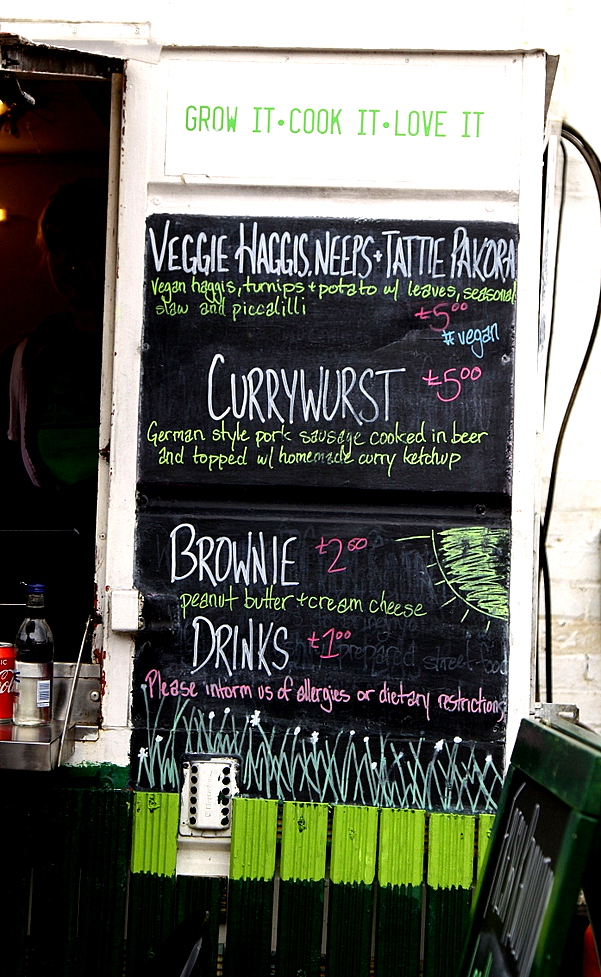 GROW IT•COOK IT•LOVE IT
VEGGIE HAGGIS, NEEPS + TATTIE PAKORA
Vegan haggis, turnips + potato w/ leaves, seasonal
slaw and piccalilli
£5⁰⁰
#vegan
CURRYWURST £5⁰⁰
German style pork sausage cooked in beer
and topped w/ homemade curry ketchup
BROWNIE £2⁵⁰
peanut butter + cream cheese
DRINKS £1⁰⁰
prepared street food
Please inform us of allergies or dietary restrictions